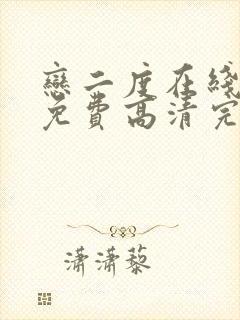 戀二度在綫
免費高清完
瀟瀟藜